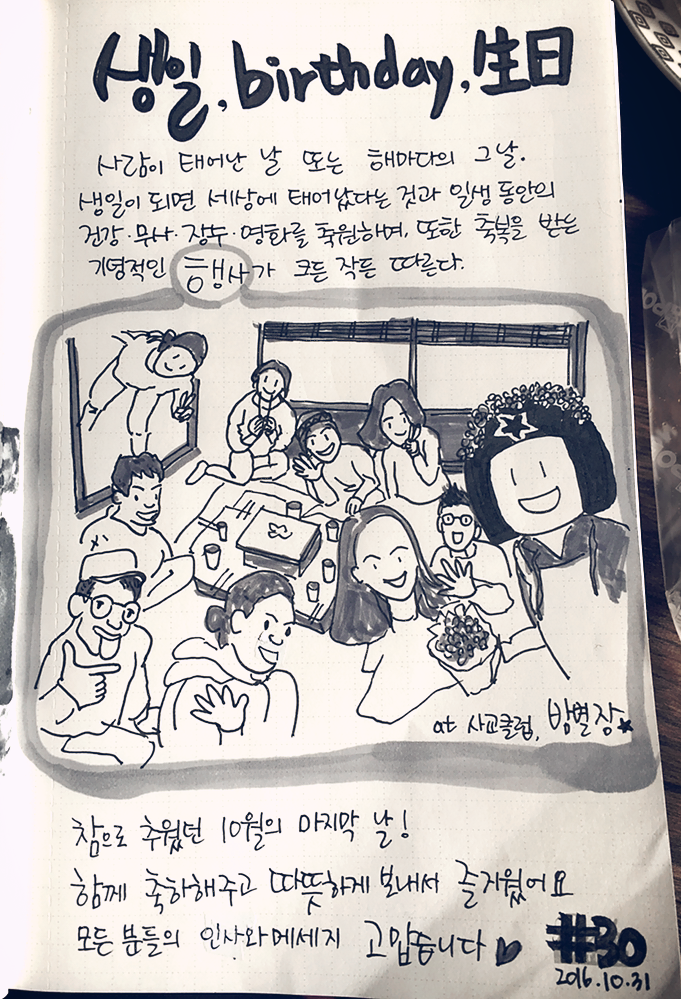 생일, birthday, 生日
사람이 태어난 날 또는 해마다의 그날.
생일이 되면 세상에 태어났다는 것과 일생 동안의
건강·무사·장수·영화를 축원하며, 또한 축복을 받는
기념적인 행사가 크든 작든 따른다.
at 사교클럽, 방별장★
참으로 추웠던 10월의 마지막 날!
함께 축하해주고 따뜻하게 보내서 즐거웠어요
모든 분들의 인사와 메세지 고맙습니다 ♥
#30
2016.10.31